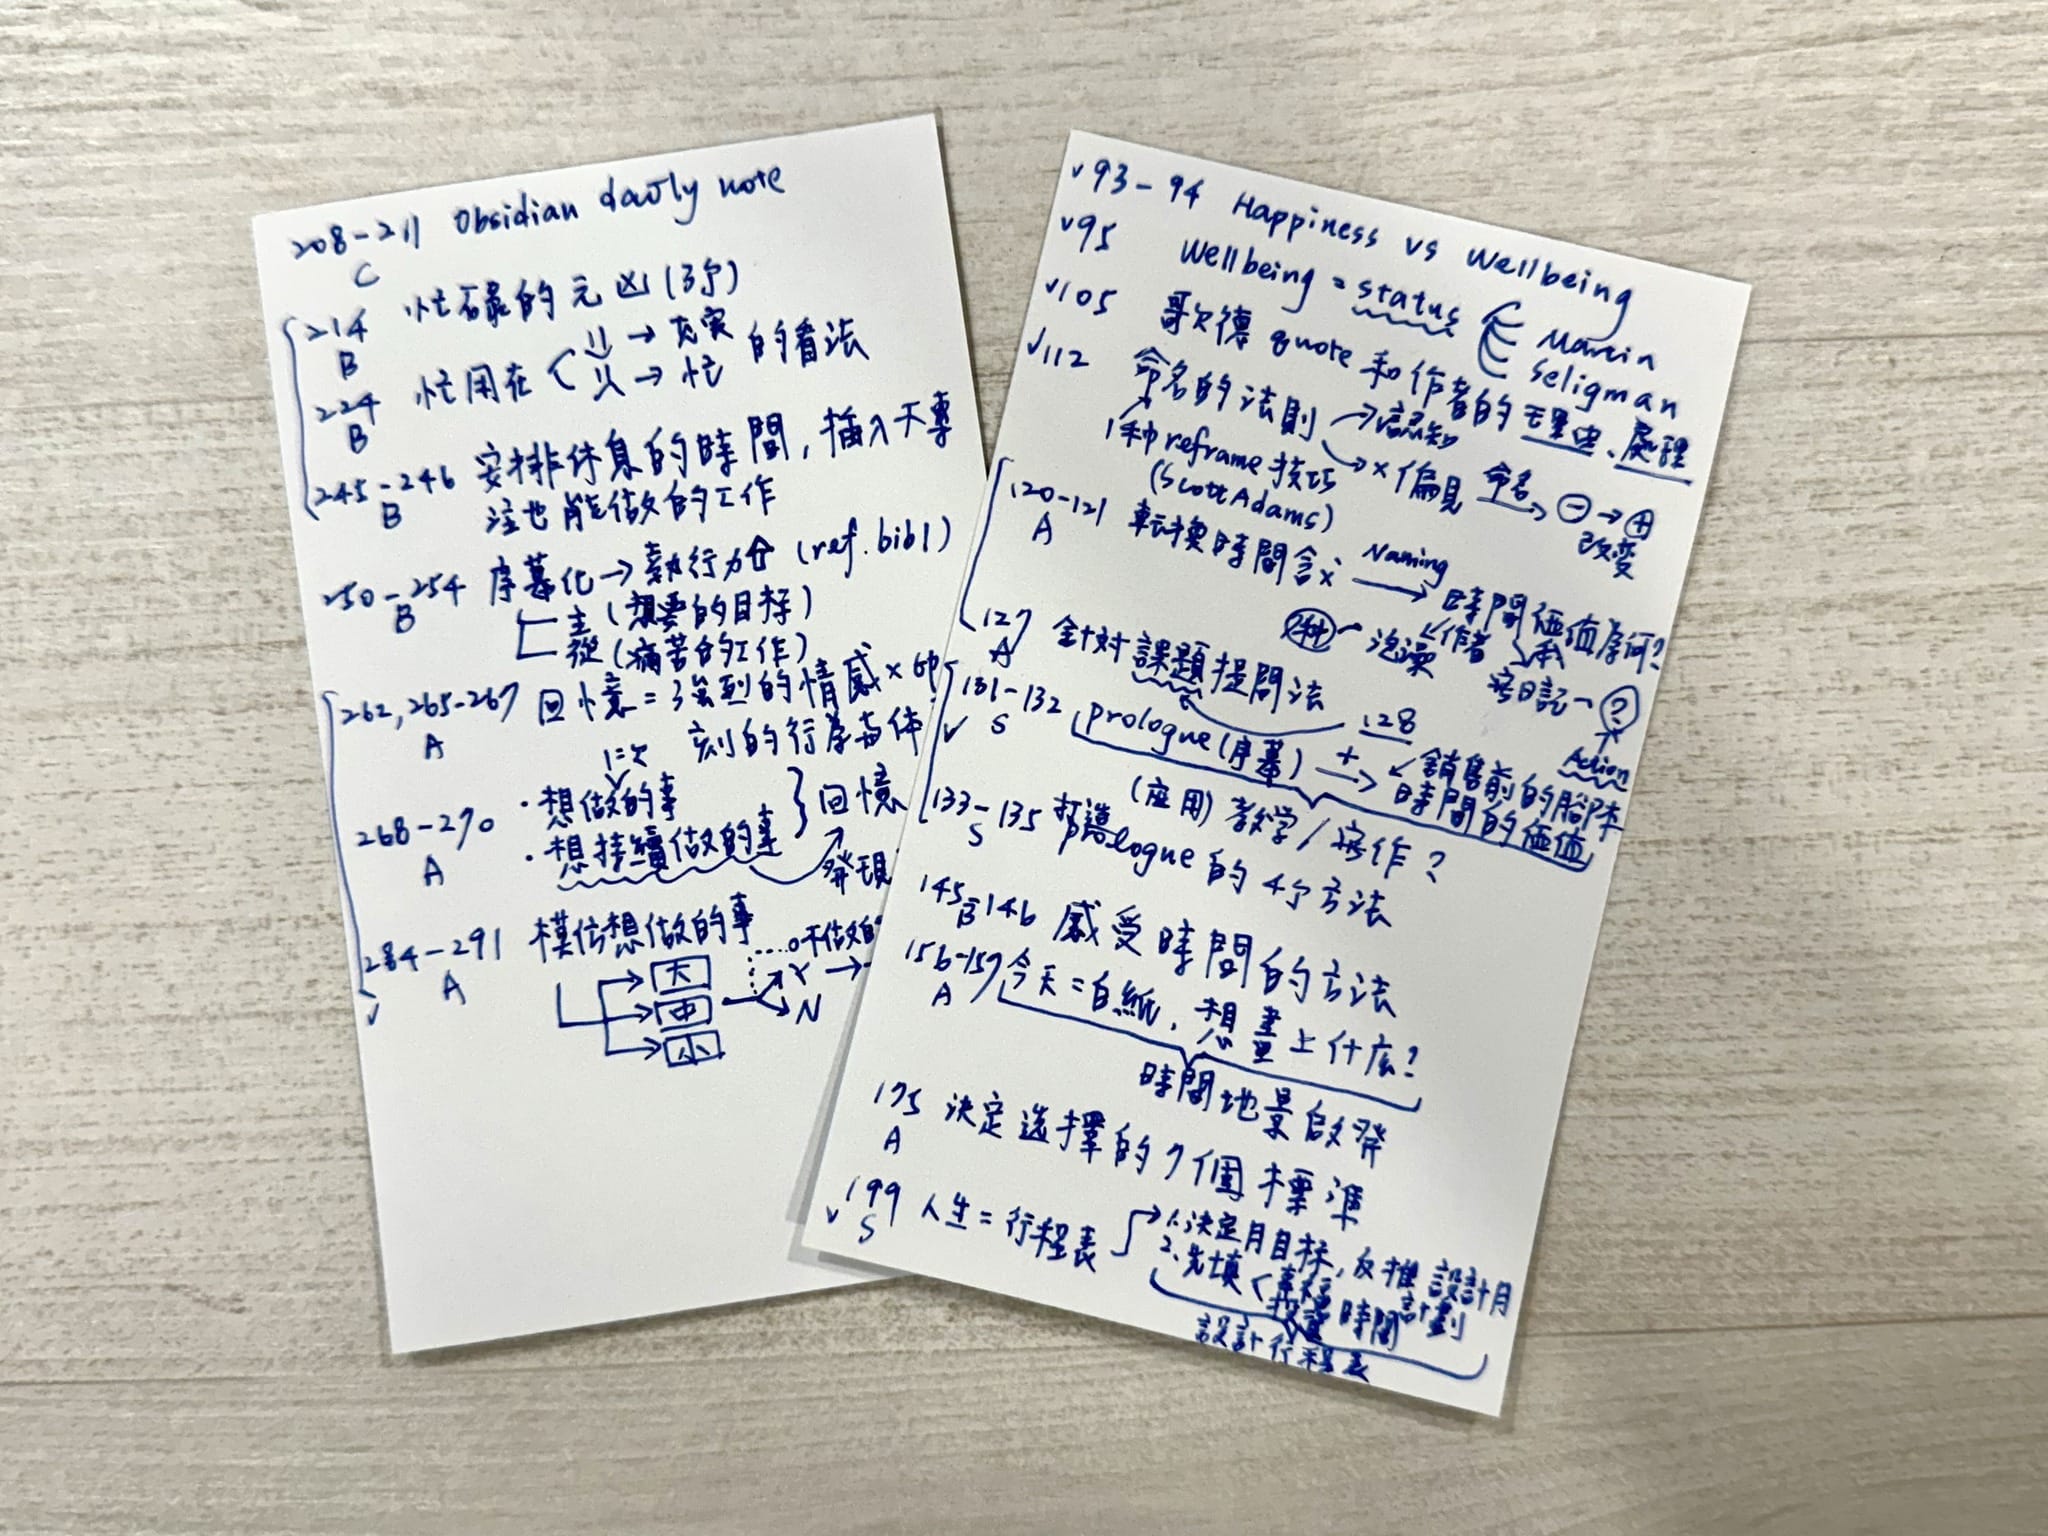 208-211 Obsidian daily note
C
214 忙碌的元凶(3个)
B
224 忙用在 → 充実 的看法
B → 忙
245-246 安排休息的時間,插入不專
B 注也能做的工作
250-254 序幕化→執行力⇧(ref.bib1)
B 主(想要的目标)
從(痛苦的工作)
262,265-267 回憶=強烈的情感×
A 刻的行為
268-270 ・想做的事
A ・想持續做的事 } 回憶
發現
284-291 模仿想做的事
A 大
中 → Y →
小 N
✓
✓93-94 Happiness vs Wellbeing
✓95 Wellbeing = status Martin
Seligman
✓105 歌德 quote 和作者的 、處理
✓112 命名的法則 →認知
→×偏見 命名→ ⊖→⊕
改変
1种 reframe 技巧
(Scott Adams)
120-121 転換時間含义 Naming→ 時間価值為何?
A 作者 我
泡澡 寫日記- ?
Action
127 針対課題提問法
A 128
131-132 prologue(序幕) + → 銷售前的腳本
S 時間的価值
✓
(応用) 教学/寫作?
133-135 打造prologue的4个方法
S
145-146 感受時間的方法
B
156-157 今天=白紙,想畫上什麼?
A
時間地景啟発
175 決定選擇的7個標準
A
✓199 人生=行程表 → 1.決定月目标,反推設計月
S 計劃
2.先填< 時間
設計行程表